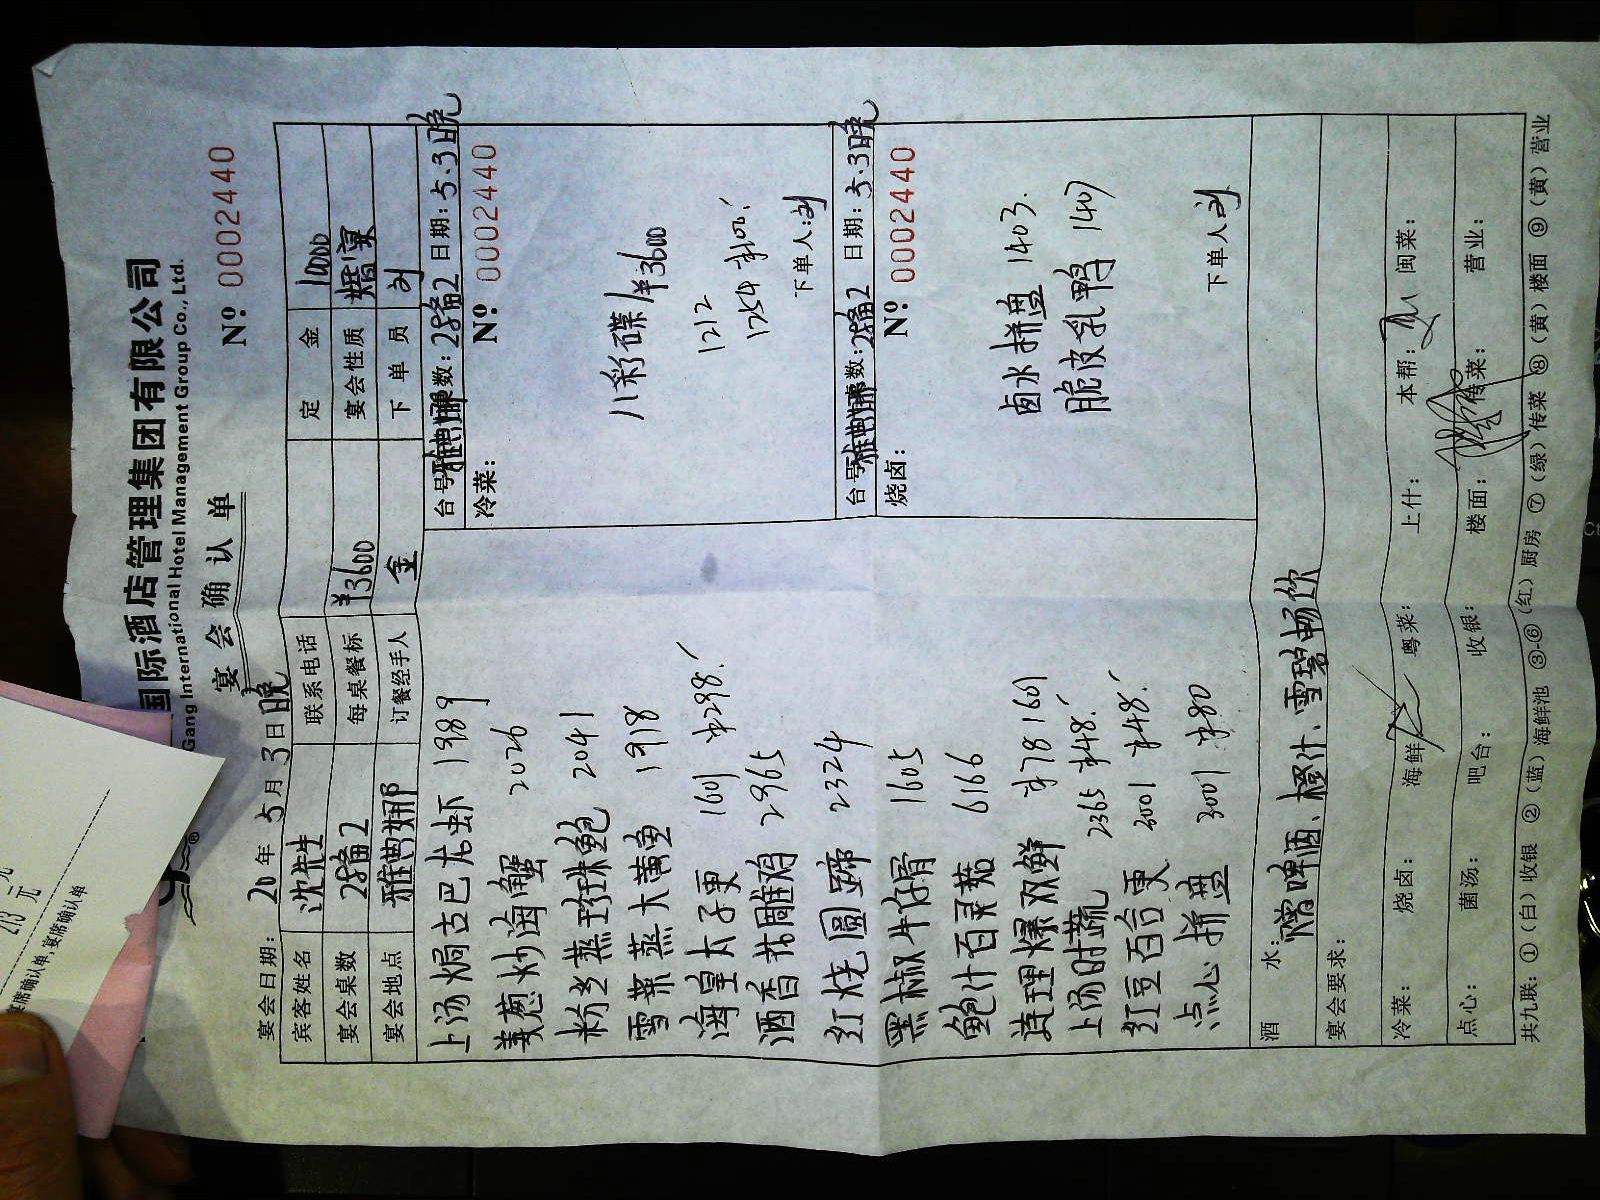 国际酒店管理集团有限公司
Gang International Hotel Management Group Co., Ltd.
宴会确认单
№ 0002440
宴会日期: 20 年 5月 3日晚
宾客姓名 沈先生 联系电话 定金 1000
宴会桌数 28备2 每桌餐标 ¥3600 宴会性质 婚宴
宴会地点 雅典娜 订餐经手人 金 下单员 刘
上汤焗古巴龙虾 1989
姜葱炒海蟹 2026
粉丝蒸珍珠鲍 2041
雪菜蒸大黄鱼 1918
海皇太子更 1601 ¥298.
酒香花雕鸡 2965
红烧圆蹄 2324
黑椒牛仔骨 1605
鲍汁百灵菇 6166
爆双鲜 ¥78 1601
上汤时蔬 2365 ¥48.
红豆百合更 3001 ¥48.
点心拼盘 3001 ¥80
台号雅典娜 数: 28备2 日期: 5.3晚
冷菜: № 0002440
八彩碟/¥3600
1212
1254
下单人: 刘
台号雅典娜 数: 28备2 日期: 5.3晚
烧卤: № 0002440
卤水拼盘 1403.
脆皮乳鸭 1407
下单人 刘
酒水: 赠啤酒、橙汁、雪碧畅饮
宴会要求:
冷菜: 烧卤: 海鲜 粤菜: 上什: 本帮: 闽菜:
点心: 菌汤: 吧台: 收银: 楼面: 传菜: 营业:
共九联: ①(白)收银 ②(蓝)海鲜池 ③-⑥(红)厨房 ⑦(绿)传菜 ⑧(黄)楼面 ⑨(黄)营业
元
213 元
宴席确认单,宴席确认单